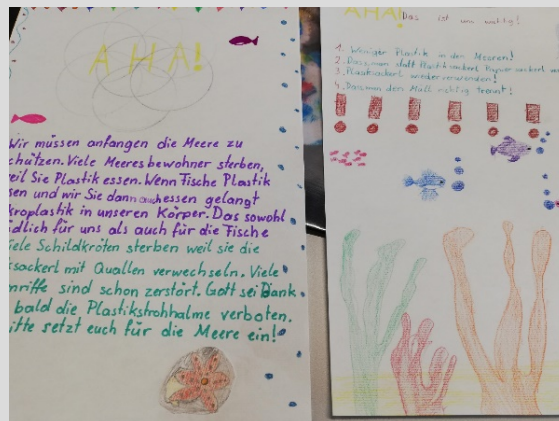 AHA!
Wir müssen anfangen die Meere zu
chützen. Viele Meeresbewohner sterben,
eil Sie Plastik essen. Wenn Fische Plastik
sen und wir Sie dann auch essen gelangt
kroplastik in unseren Körper. Das sowohl
ädlich für uns als auch für die Fische
iele Schildkröten sterben weil sie die
ksackerl mit Quallen verwechseln. Viele
nriffe sind schon zerstört. Gott sei Dank
bald die Plastikstrohhalme verboten.
itte setzt euch für die Meere ein!
AHA! Das ist uns wichtig!
1. Weniger Plastik in den Meeren!
2. Dass man statt Plastiksackerl Papiersackerl
3. Plastiksackerl wiederverwenden!
4. Dass man den Müll richtig trennt!